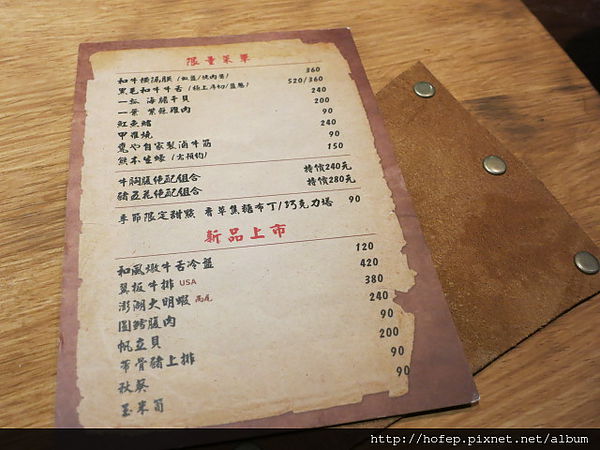 限量菜單
和牛橫隔膜 (椒鹽/燒肉醬) 360
黑毛和牛牛舌 (極上厚切/鹽蔥) 520/360
一 海膽干貝 240
一葉 紫蘇雞肉 200
魟魚鰭 90
甲羅燒 240
や自家製滷牛筋 90
熊本生蠔 (需預約) 150
牛胸腹絕配組合 特價240元
豬五花絕配組合 特價280元
季節限定甜點 香草焦糖布丁/巧克力塔 90
新品上市
和風燉牛舌冷盤 120
翼板牛排 USA 420
澎湖大明蝦 兩尾 380
圓鱈腹肉 240
帆立貝 90
帶骨豬上排 200
秋葵 90
玉米筍 90
http://hofep.pixnet.net/album